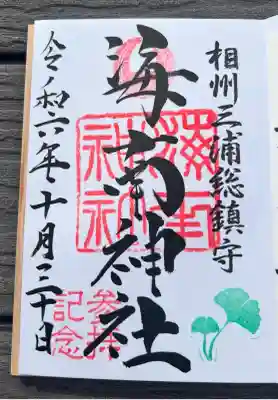 相州三浦総鎮守
海南神社
海南神社
参拝
記念
令和六年十月三十日